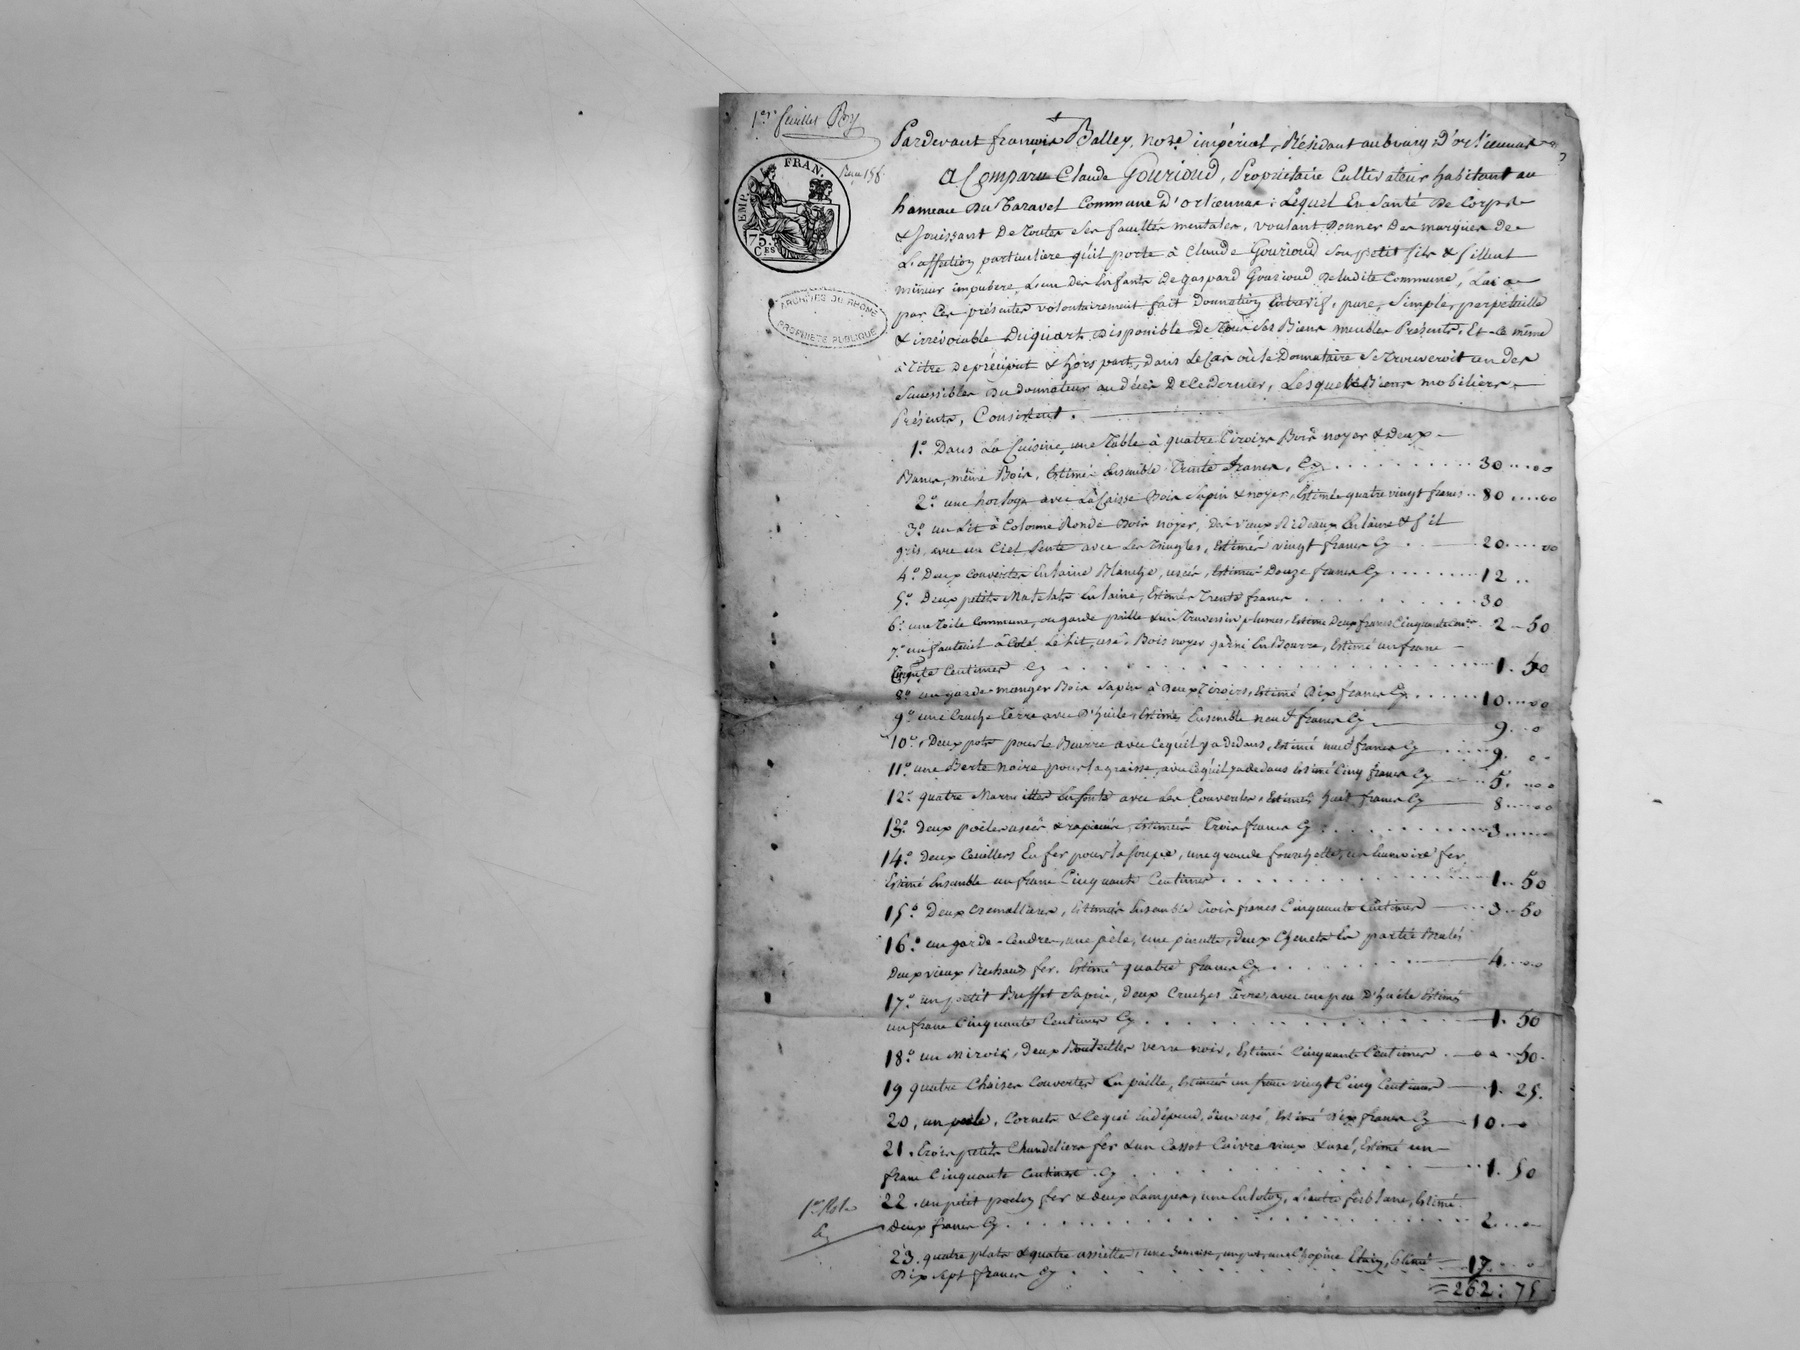 1er feuillet Roy
Pardevant françois Balley, Nore impérial, Résidant au bourg D'orliennas
A Comparu Claude Gourioud, Propriétaire Cultivateur habitant au
hameau Du Taravel Commune D'orliennas: Lequel En Santé De Corps
& Jouissant De Toutes Ses facultés mentales, voulant Donner Des marques De
L'affection particuliere qu'il porte à Claude Gourioud Son petit fils & filleul
mineur impubere, L'un Des Enfants De gaspard Gourioud De ladite Commune, Lui a
par Ces présentes volontairement fait Donnation Entrevifs, pure, Simple, perpetuelle
& irrévocable Du quart Disponible De Tous Ses Biens meubles Présents, Et Ce même
à Titre De préciput & hors part, Dans Le Cas où le Donnataire Se Trouveroit un Des
Successibles Du Donnateur au décès De Ce Dernier, Lesquels Biens mobiliers
Présents, Consistent.
EMP. FRAN.
75. CES
ARCHIVES DU RHÔNE
PROPRIÉTÉ PUBLIQUE
1.° Dans La Cuisine, une Table à quatre Tiroirs Bois noyer & Deux
Bancs, même Bois, Estimés Ensemble Trente francs, Cy 30 .. 00
2.° une horloge avec Sa Caisse Bois Sapin & noyer, Estimée quatre vingt francs 80 .. 00
3.° un Lit à Colonne Ronde Bois noyer, Des vieux Rideaux En laine & fil
gris, avec un Ciel Pente avec Les Tringles, Estimés vingt francs Cy 20 .. 00
4.° Deux Couvertes En laine Blanche, usées, Estimées Douze francs Cy 12 ..
5.° Deux petits Matelats En laine, Estimés Trente francs 30
6.° une Toile Commune, ou garde paille & un Traversin plumes, Estimé Deux francs Cinquante Cmes 2 - 50
7.° un fauteuil à Coté Le Lit, usé, Bois noyer garni En Bourre, Estimé un franc
Cinquante Centimes Cy 1. 50
8.° un garde-manger Bois Sapin à Deux Tiroirs, Estimé Dix francs Cy 10 .. 00
9.° une Cruche Terre avec D'huile, Estimés Ensemble neuf francs Cy 9 .. 0
10.° Deux pots pour le Beurre avec Ce qu'il y a Dedans, Estimé neuf francs Cy 9. 00
11.° une Berte noire pour la graisse, avec Ce qu'il y a dedans Estimé Cinq francs Cy 5. 00
12.° quatre Marmittes En fonte avec Les Couvercles, Estimés huit francs Cy 8 .. 00
13.° Deux poëles usées & rapiecées, Estimées Trois francs Cy 3
14.° Deux Cuillers En fer pour la Soupe, une grande fourchette, un fer,
Estimé Ensemble un franc Cinquante Centimes 1. 50
15.° Deux Cremallieres, Estimées Ensemble Trois francs Cinquante Centimes 3. 50
16.° un garde-Cendres, une pêle, une pincette, Deux Chenets En partie Brulés
Deux vieux Rechauds fer. Estimé quatre francs Cy 4. 00
17.° un petit Buffet Sapin, Deux Cruches Terre, avec un peu D'huile Estimés
un franc Cinquante Centimes Cy 1. 50
18.° un Miroir, Deux Bouteilles verre noir, Estimé Cinquante Centimes 0 . 50.
19 quatre Chaises Couvertes En paille, Estimées un franc vingt Cinq Centimes 1. 25.
20, un poële, Cornets & Ce qui En dépend, bien usé, Estimé Dix francs Cy 10
21. Trois petits Chandeliers fer & un Cassot Cuivre vieux & usé, Estimé un
franc Cinquante Centimes Cy 1. 50
22. un petit poëlon fer & Deux Lampes, une En loton, L'autre ferblanc, Estimé
Deux francs Cy 2
23. quatre plats & quatre assiettes, une un pot, une Chopine Etain, Estimé
Dix Sept francs Cy 17
262: 75
1er Rôle